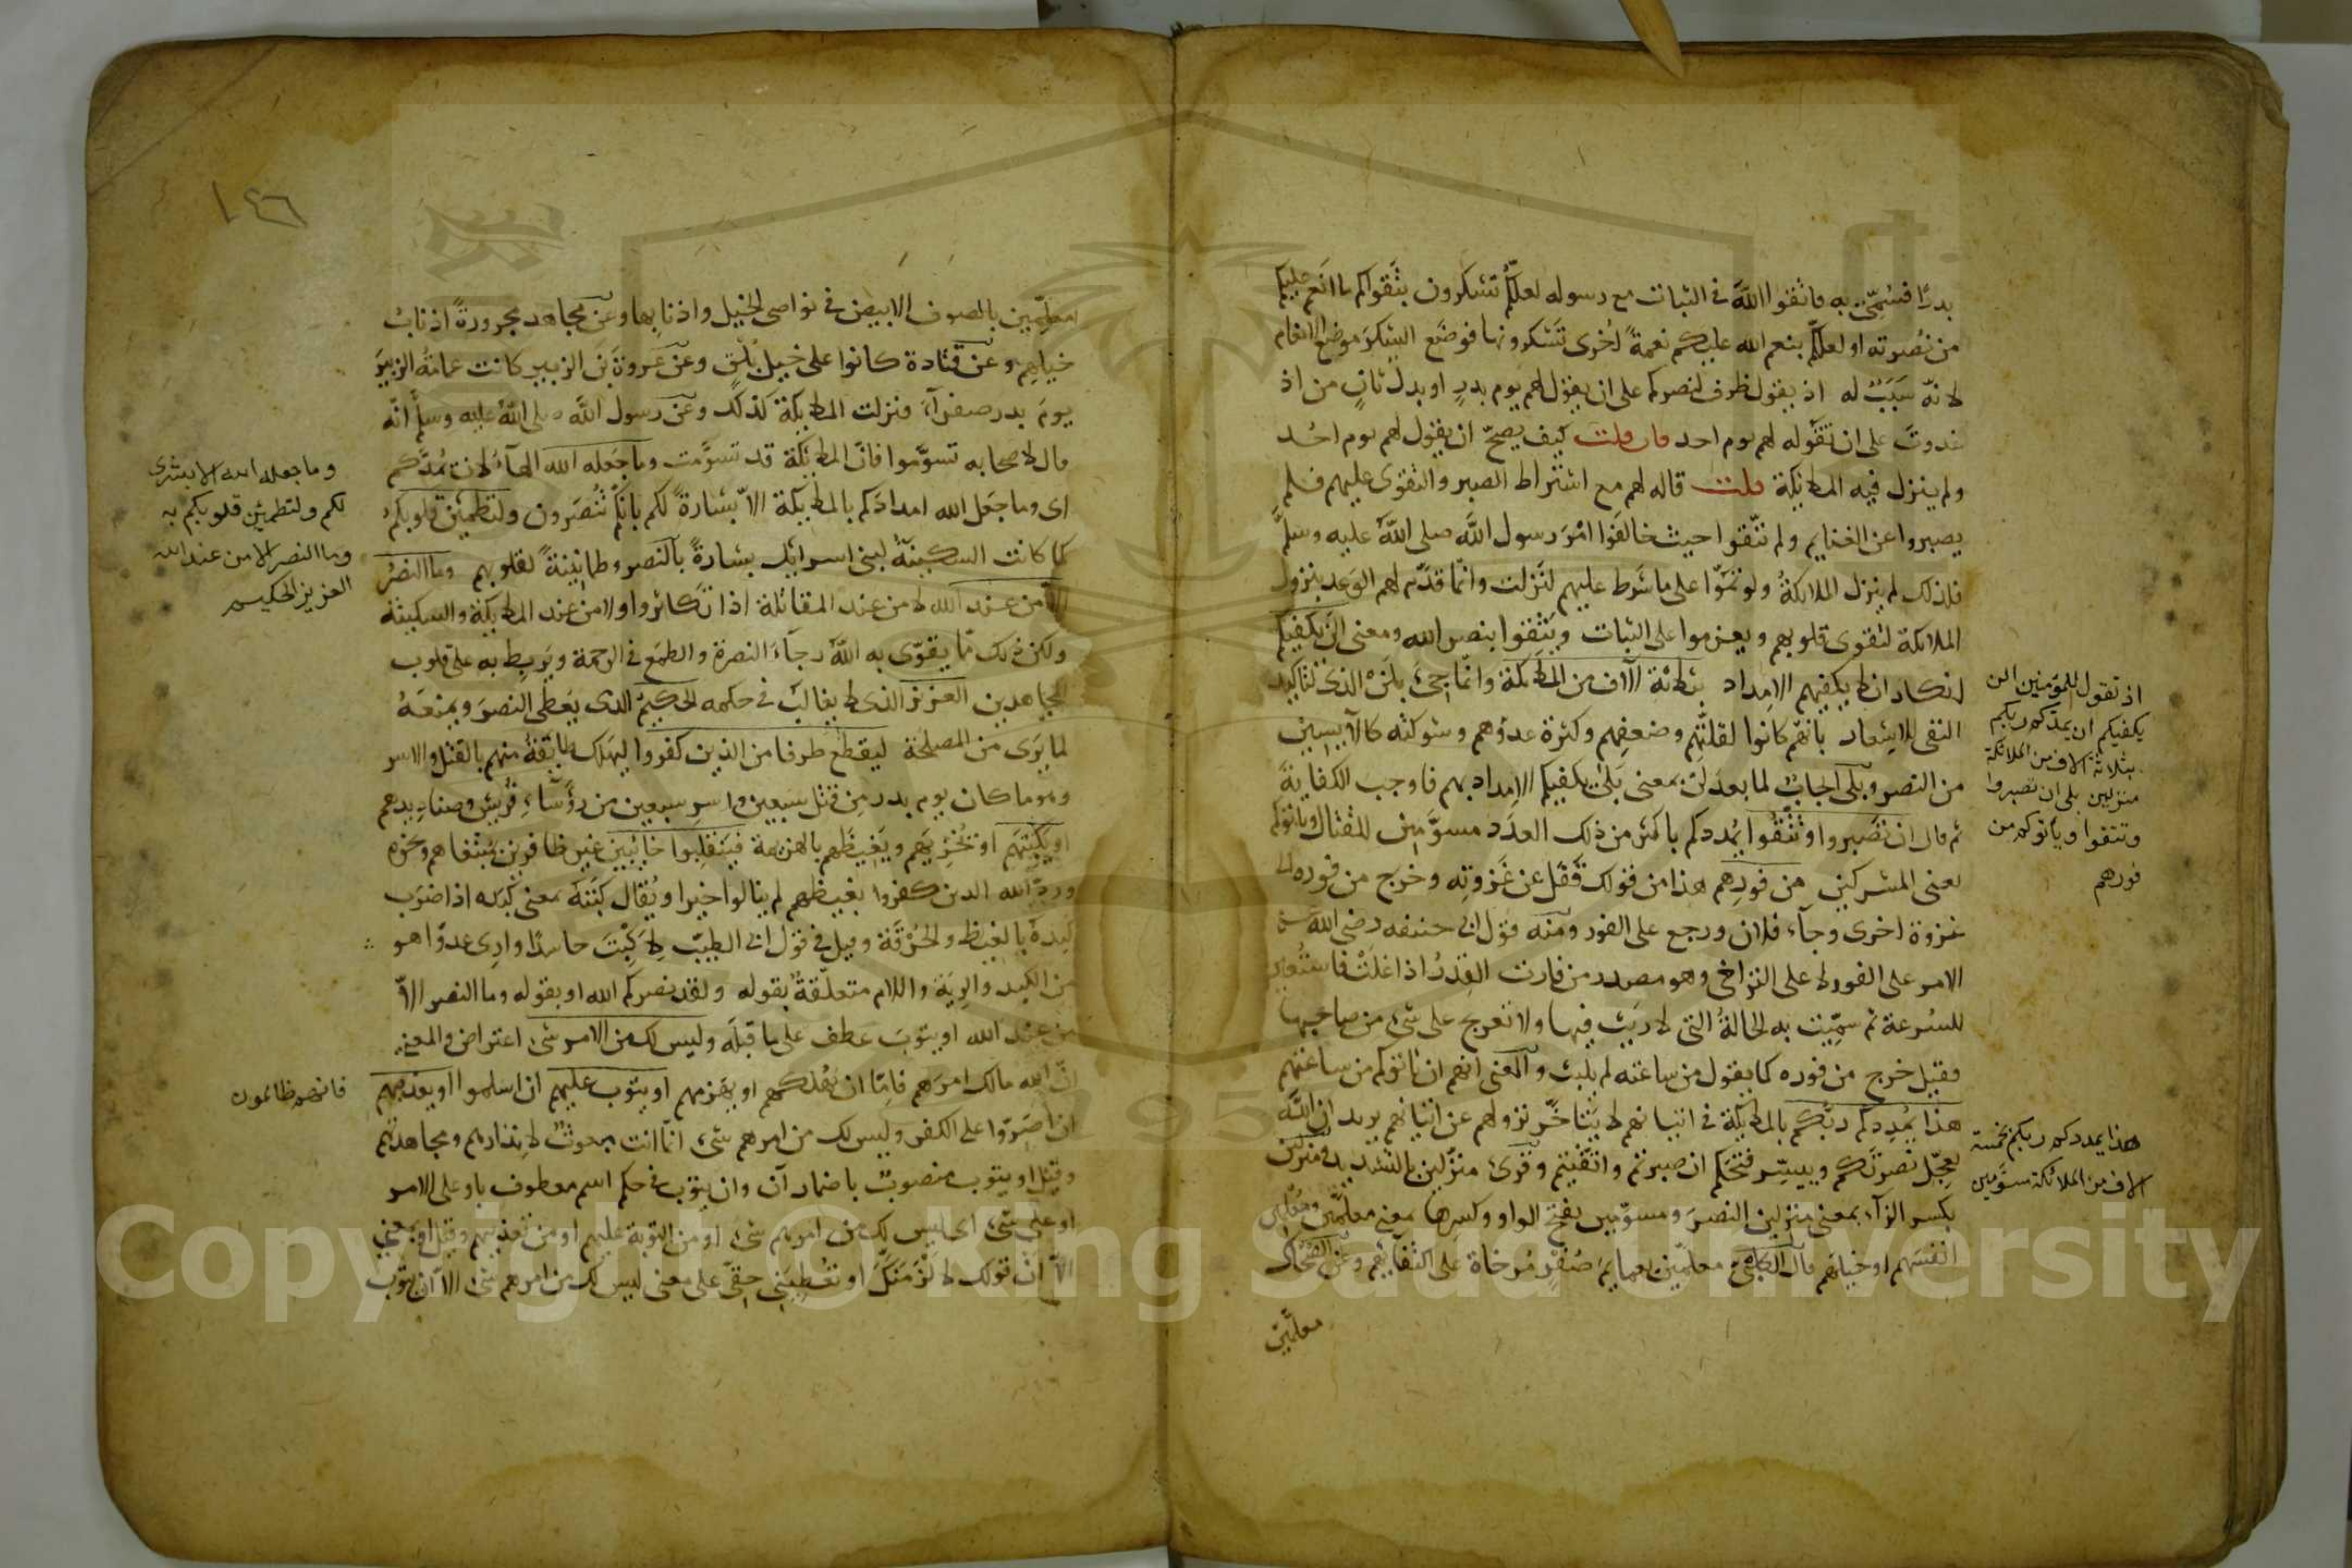 بدرًا فسُمّى به فاتقوا الله فى الثبات مع رسوله لعلكم تشكرون بتقواكم ما انعم عليكم
من نصرته او لعلكم ينعم الله عليكم نعمةً اُخرى تشكرونها فوضع الشكر موضع الانعام
لانه سبَبٌ له اذ يقول ظرف لنصركم على ان يقول لهم يوم بدر او بدل ثانٍ من اذ
غدوتَ على ان تقوله لهم يوم احد فان قلت كيف يصحّ ان يقول لهم يوم احد
ولم ينزل فيه الملائكة قلت قاله لهم مع اشتراط الصبر والتقوى عليهم فلم
يصبروا عن الغنايم ولم تتّقوا حيث خالفوا امْرَ رسول الله صلى الله عليه وسلم
فلذلك لم ينزل الملائكةُ ولو تمّوا على ما شرط عليهم لنزلت وانما قدّم لهم الوعد بنزول
الملائكة لتقوى قلوبهم ويعزموا على الثبات ويَثِقوا بنصر الله ومعنى الن يكفيكم
انكار ان لا يكفيهم الامداد بثلاثة آلاف من الملائكة وانما جئ بلَنْ الذى لتاكيد
النفى للاشعار بانهم كانوا لقلتهم وضعفهم وكثرة عدوهم وشوكته كالآيسين
من النصر وبلى ايجابٌ لما بعد لن بمعنى بَلىْ يكفيكم الامداد بهم فاوجب الكفاية
ثم قال ان تصبروا وتتّقوا يُمددكم باكثر من ذلك العدَد مسوّمين للقتال وياتوكم
يعنى المشركين من فورهم هذا من قولك قفل عن غزوته وخرج من فوره الى
غزوة اخرى وجآء فلان ورجع على الفور ومنه قول ابى حنيفه رضى الله عنه
الامر على الفور لا على التراخى وهو مصدر من فارت القِدْرُ اذا غلتْ فاستُعير
للسُرعة ثم سمّيت به الحالةُ التى لا ريْث فيها ولا تعريج على شئ من صاحبها
فقيل خرج من فوره كما يقول من ساعته لم يلبث والمعنى انهم ان ياتوكم من ساعتهم
هذا يُمددكم ربّكم بالملائكة فى اتيانهم لا يتاخّر نزولهم عن اتيانهم يريد ان الله
يعجّل نصرتكم وييسّر فتحكم ان صبرتم واتقيتم وقرئ منزّلين بالتشديد ومنزلين
بكسر الزآء بمعنى منزلين النصرَ ومسوّمين بفتح الواو وكسرها بمعنى معلَّمين ومعلِّمين
انفسَهم او خيلهم قال الكلبى معلمين بعمايم صُفْرٍ مُرخاة على اكتافهم وعن الضحّاك
معلمين
اذ تقول للمؤمنين الن
يكفيكم ان يمدكم ربكم
بثلاثة الاف من الملائكة
منزلين بلى ان تصبروا
وتتقوا ويأتوكم من
فورهم
هذا يمددكم ربكم بخمسة
الاف من الملائكة مسومين
١٤٦
معلِّمين بالصوف الابيض فى نواصى الخيل واذنابها وعن مجاهد مجرورةً اذنابُ
خيلهم وعن قتادة كانوا على خيل بُلْقٍ وعن عروة بن الزبير كانت عمامةُ الزبير
يومَ بدر صفرآء فنزلت الملائكة كذلك وعن رسول الله صلى الله عليه وسلم انّه
قال لاصحابه تسوّموا فانّ الملائكة قد تسوّمت وما جَعله الله الهآءُ لان يمدّكم
اى وما جعَل الله امدادكم بالملائكة الا بشارةً لكم بانكم تُنصَرون ولتطمئن قلوبكم
كما كانت السكينةُ لبنى اسرايل بشارةً بالنصر وطمانينةً لقلوبهم وما النصرُ
الا من عند الله لا من عند المقاتلة اذا تكاثروا ولا من عند الملائكة والسكينة
ولكن ذلك مما يقوّى به اللهُ رجآءَ النصرة والطمع فى الرحمة ويربط به على قلوب
المجاهدين العزيز الذى لا يغالَب فى حكمه الحكيم الذى يعطى النصرَ ويمنعَهُ
لما يَرَى من المصلحة ليقطع طرفا من الذين كفروا ليهلك طايفةً منهم بالقتل والاسر
وهو ما كان يوم بدر مِن قَتْل سبعين واسرِ سبعين من رؤسآءِ قريش وصناديدهم
او يكبتهم او يُخْزيَهم ويَغيظَهم بالهزيمة فينقلبوا خائبين غير ظافرين بمبتغاهم ونحوه
وردّ الله الذين كفروا بغيظهم لم ينالوا خيرا ويُقال كبَتَه بمعنى كبَده اذا ضرَب
كبِدَهُ بالغيظ والحُرْقة وقيل فى قول ابى الطيب لاكبِتَ حاسدًا وارى عدوّا هو
من الكبد والرِيَة واللام متعلّقةٌ بقوله ولقد نصركم الله او بقوله وما النصر الاّ
من عند الله او يتوبَ عطف على ما قبلَه وليس لك من الامر شئ اعتراض والمعنى
انّ الله مالك امرَهم فامّا ان يُهلكهم او يهزمهم او يتوب عليهم ان اسلموا او يعذبهم
ان اصَرّوا على الكفر وليس لك من امرهم شئ انّما انت مبعوثٌ لانذارهم ومجاهدتهم
وقيل او يتوب منصوبٌ باضمار ان وان يتوب فى حكم اسم معطوف باو على الامر
او على شئ اى ليس لك من امرهم شئ او من التوبة عليهم او من تعذيبهم وقيل او بمعنى
الاّ ان قولك لالزمنّكَ او تعطيَنى حقى على معنى ليس لك من امرهم شئ الا ان يتوب
وما جعله الله الا بشرى
لكم ولتطمئن قلوبكم به
وما النصر الا من عند الله
العزيز الحكيم
فانهم ظالمون
Copyright © King Saud University
195